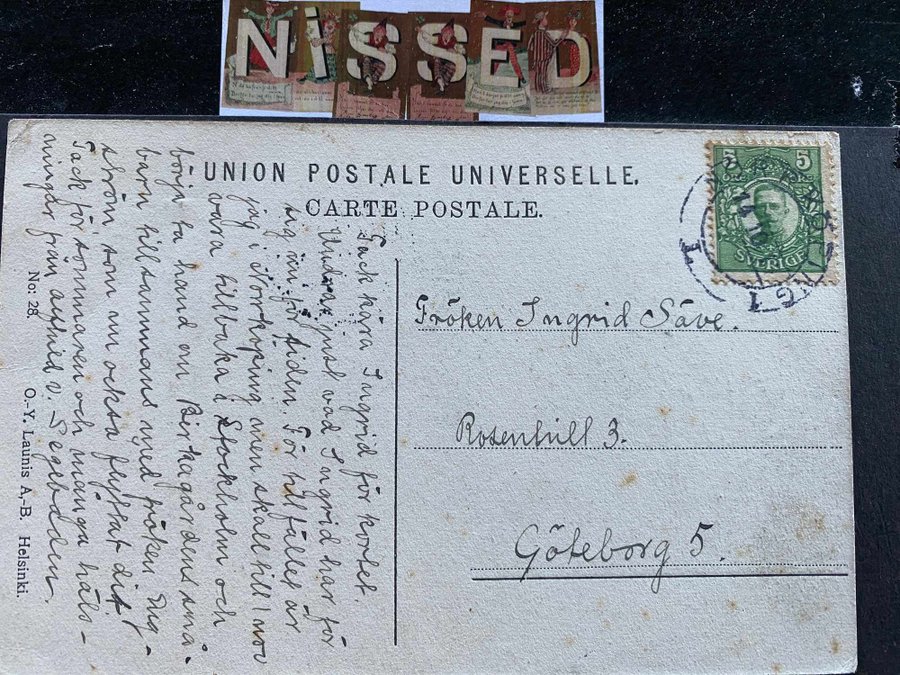 NISSED
UNION POSTALE UNIVERSELLE.
CARTE POSTALE.
5 5
SVERIGE
Fröken Ingrid Säve.
Rosenhill 3.
Göteborg 5.
Tack kära Ingrid för kortet.
Undrar just vad Ingrid har för
sig för tiden. För tillfället är
jag i Norrköping men skall till 1 nov
vara tillbaka i Stockholm och
börja ta hand om Birkagårdens små-
barn tillsammans med fröken Eng-
ström som nu också flyttat dit.
Tack för sommaren och många häls-
ningar från
No: 28. O.-Y. Launis A.-B. Helsinki.